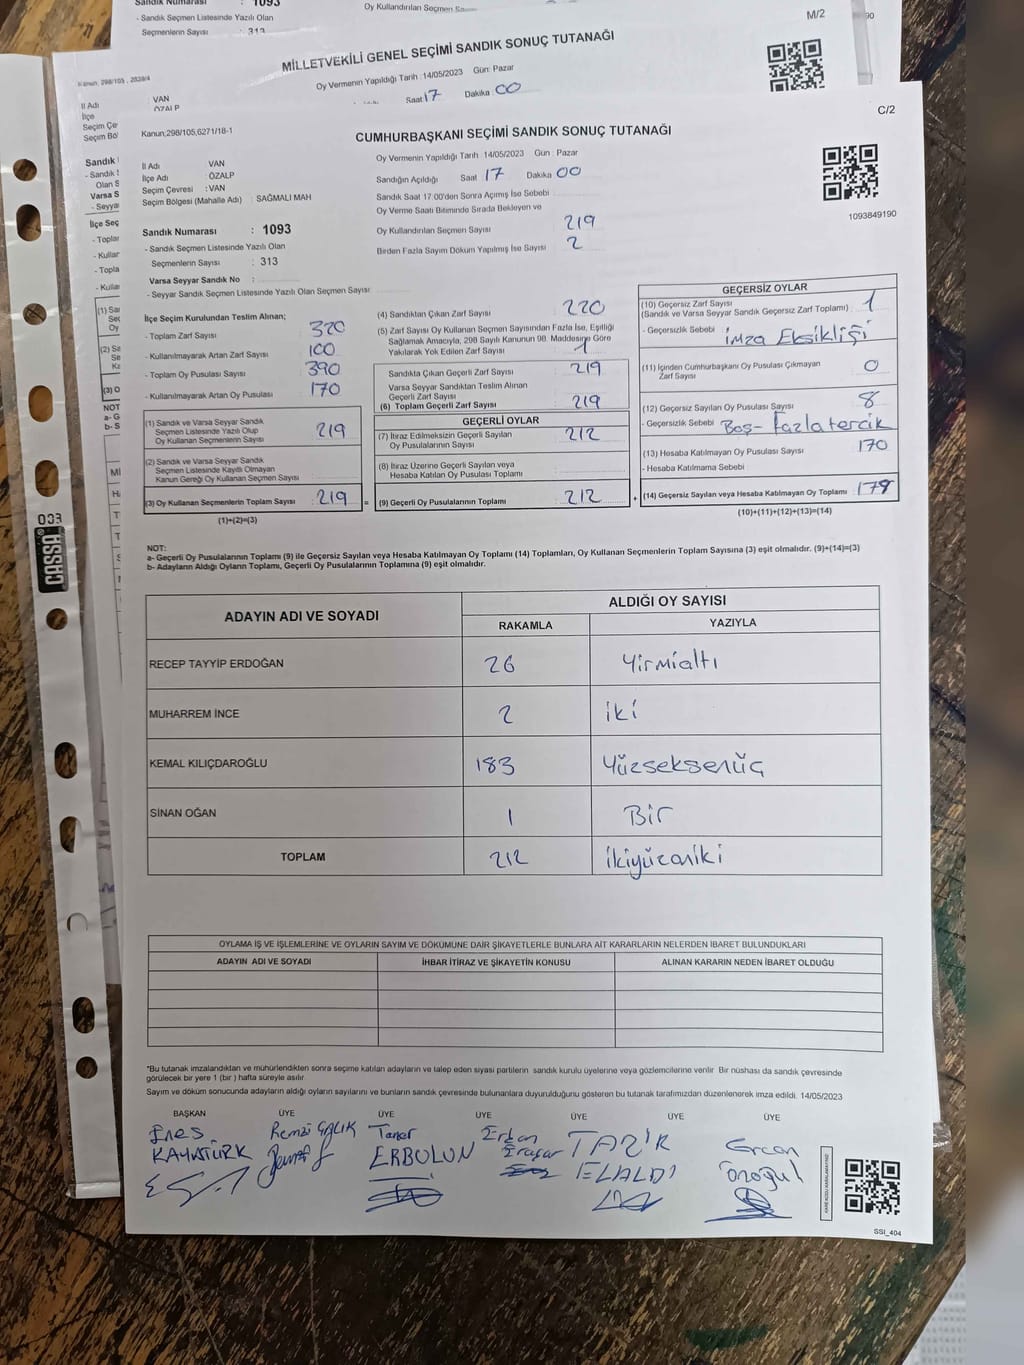 Sandık Numarası : 1093
- Sandık Seçmen Listesinde Yazılı Olan
Seçmenlerin Sayısı : 313
Oy Kullandırılan Seçmen
M/2
MİLLETVEKİLİ GENEL SEÇİMİ SANDIK SONUÇ TUTANAĞI
Oy Vermenin Yapıldığı Tarih :14/05/2023 Gün: Pazar
Saat 17 Dakika 00
İl Adı : VAN
ÖZALP
C/2
Kanun;298/105,6271/18-1
CUMHURBAŞKANI SEÇİMİ SANDIK SONUÇ TUTANAĞI
İl Adı : VAN
İlçe Adı : ÖZALP
Seçim Çevresi : VAN
Seçim Bölgesi (Mahalle Adı) : SAĞMALI MAH
Oy Vermenin Yapıldığı Tarih :14/05/2023 Gün : Pazar
Sandığın Açıldığı Saat 17 Dakika 00
Sandık Saat 17 00'den Sonra Açılmış İse Sebebi
Oy Verme Saati Bitiminde Sırada Bekleyen ve
Oy Kullandırılan Seçmen Sayısı 219
Birden Fazla Sayım Döküm Yapılmış İse Sayısı 2
1093849190
Sandık Numarası : 1093
- Sandık Seçmen Listesinde Yazılı Olan
Seçmenlerin Sayısı : 313
Varsa Seyyar Sandık No :
- Seyyar Sandık Seçmen Listesinde Yazılı Olan Seçmen Sayısı
İlçe Seçim Kurulundan Teslim Alınan;
- Toplam Zarf Sayısı 320
- Kullanılmayarak Artan Zarf Sayısı 100
- Toplam Oy Pusulası Sayısı 390
- Kullanılmayarak Artan Oy Pusulası 170
(1) Sandık ve Varsa Seyyar Sandık
Seçmen Listesinde Yazılı Olup
Oy Kullanan Seçmenlerin Sayısı 219
(2) Sandık ve Varsa Seyyar Sandık
Seçmen Listesinde Kaydı Olmayan
Kanun Gereği Oy Kullanan Seçmen Sayısı
(3) Oy Kullanan Seçmenlerin Toplam Sayısı 219 =
(1)+(2)=(3)
(4) Sandıktan Çıkan Zarf Sayısı 220
(5) Zarf Sayısı Oy Kullanan Seçmen Sayısından Fazla İse, Eşitliği
Sağlamak Amacıyla, 298 Sayılı Kanunun 98. Maddesine Göre
Yakılarak Yok Edilen Zarf Sayısı 1
Sandıkta Çıkan Geçerli Zarf Sayısı 219
Varsa Seyyar Sandıktan Teslim Alınan
Geçerli Zarf Sayısı
(6) Toplam Geçerli Zarf Sayısı 219
GEÇERLİ OYLAR
(7) İtiraz Edilmeksizin Geçerli Sayılan
Oy Pusulalarının Sayısı 212
(8) İtiraz Üzerine Geçerli Sayılan veya
Hesaba Katılan Oy Pusulası Toplamı
(9) Geçerli Oy Pusulalarının Toplamı 212 +
GEÇERSİZ OYLAR
(10) Geçersiz Zarf Sayısı
(Sandık ve Varsa Seyyar Sandık Geçersiz Zarf Toplamı) 1
- Geçersizlik Sebebi : İmza Eksikliği
(11) İçinden Cumhurbaşkanı Oy Pusulası Çıkmayan
Zarf Sayısı 0
(12) Geçersiz Sayılan Oy Pusulası Sayısı 8
- Geçersizlik Sebebi : Boş- Fazla tercik
(13) Hesaba Katılmayan Oy Pusulası Sayısı 170
- Hesaba Katılmama Sebebi
(14) Geçersiz Sayılan veya Hesaba Katılmayan Oy Toplamı 179
(10)+(11)+(12)+(13)=(14)
NOT:
a- Geçerli Oy Pusulalarının Toplamı (9) ile Geçersiz Sayılan veya Hesaba Katılmayan Oy Toplamı (14) Toplamları, Oy Kullanan Seçmenlerin Toplam Sayısına (3) eşit olmalıdır. (9)+(14)=(3)
b- Adayların Aldığı Oyların Toplamı, Geçerli Oy Pusulalarının Toplamına (9) eşit olmalıdır.
003
CASSA
ADAYIN ADI VE SOYADI ALDIĞI OY SAYISI
RAKAMLA YAZIYLA
RECEP TAYYİP ERDOĞAN 26 Yirmialtı
MUHARREM İNCE 2 iki
KEMAL KILIÇDAROĞLU 183 Yüzseksenüç
SİNAN OĞAN 1 Bir
TOPLAM 212 ikiyüzoniki
OYLAMA İŞ VE İŞLEMLERİNE VE OYLARIN SAYIM VE DÖKÜMÜNE DAİR ŞİKAYETLERLE BUNLARA AİT KARARLARIN NELERDEN İBARET BULUNDUKLARI
ADAYIN ADI VE SOYADI İHBAR İTİRAZ VE ŞİKAYETİN KONUSU ALINAN KARARIN NEDEN İBARET OLDUĞU
*Bu tutanak imzalandıktan ve mühürlendikten sonra seçime katılan adayların ve talep eden siyasi partilerin sandık kurulu üyelerine veya gözlemcilerine verilir Bir nüshası da sandık çevresinde
görülecek bir yere 1 (bir ) hafta süreyle asılır
Sayım ve döküm sonucunda adayların aldığı oyların sayılarını ve bunların sandık çevresinde bulunanlara duyurulduğunu gösteren bu tutanak tarafımızdan düzenlenerek imza edildi. 14/05/2023
BAŞKAN ÜYE ÜYE ÜYE ÜYE ÜYE ÜYE
Enes Remzi ÇALIK Taner Erkan TAZİK Ercan
KAYATÜRK ERBULUN ELALDI
SSI_404